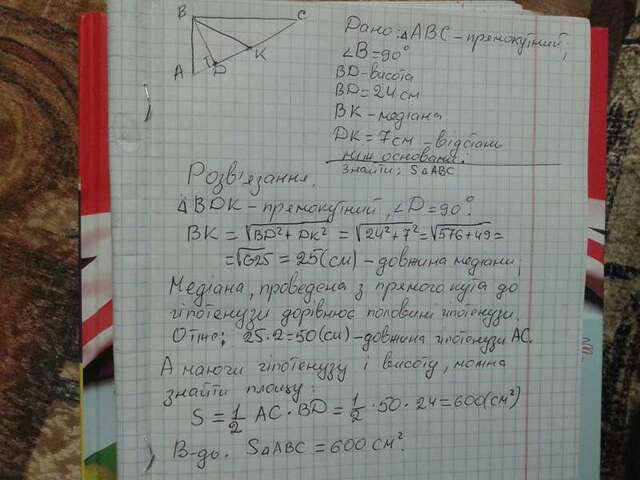 B
C
A
D
K
Дано: △ABC – прямокутний,
∠B = 90°
BD – висота
BD = 24 см
BK – медіана
DK = 7 см – відстань
між основами.
Знайти: S△ABC
Розв'язання.
△BDK – прямокутний, ∠D = 90°.
BK = √BD² + DK² = √24² + 7² = √576 + 49 =
= √625 = 25 (см) – довжина медіани;
Медіана, проведена з прямого кута до
гіпотенузи дорівнює половині гіпотенузи.
Отже; 25 · 2 = 50 (см) – довжина гіпотенузи AC.
А маючи гіпотенузу і висоту, можна
знайти площу:
S = 1/2 AC · BD = 1/2 · 50 · 24 = 600 (см²)
В-дь. S△ABC = 600 см².